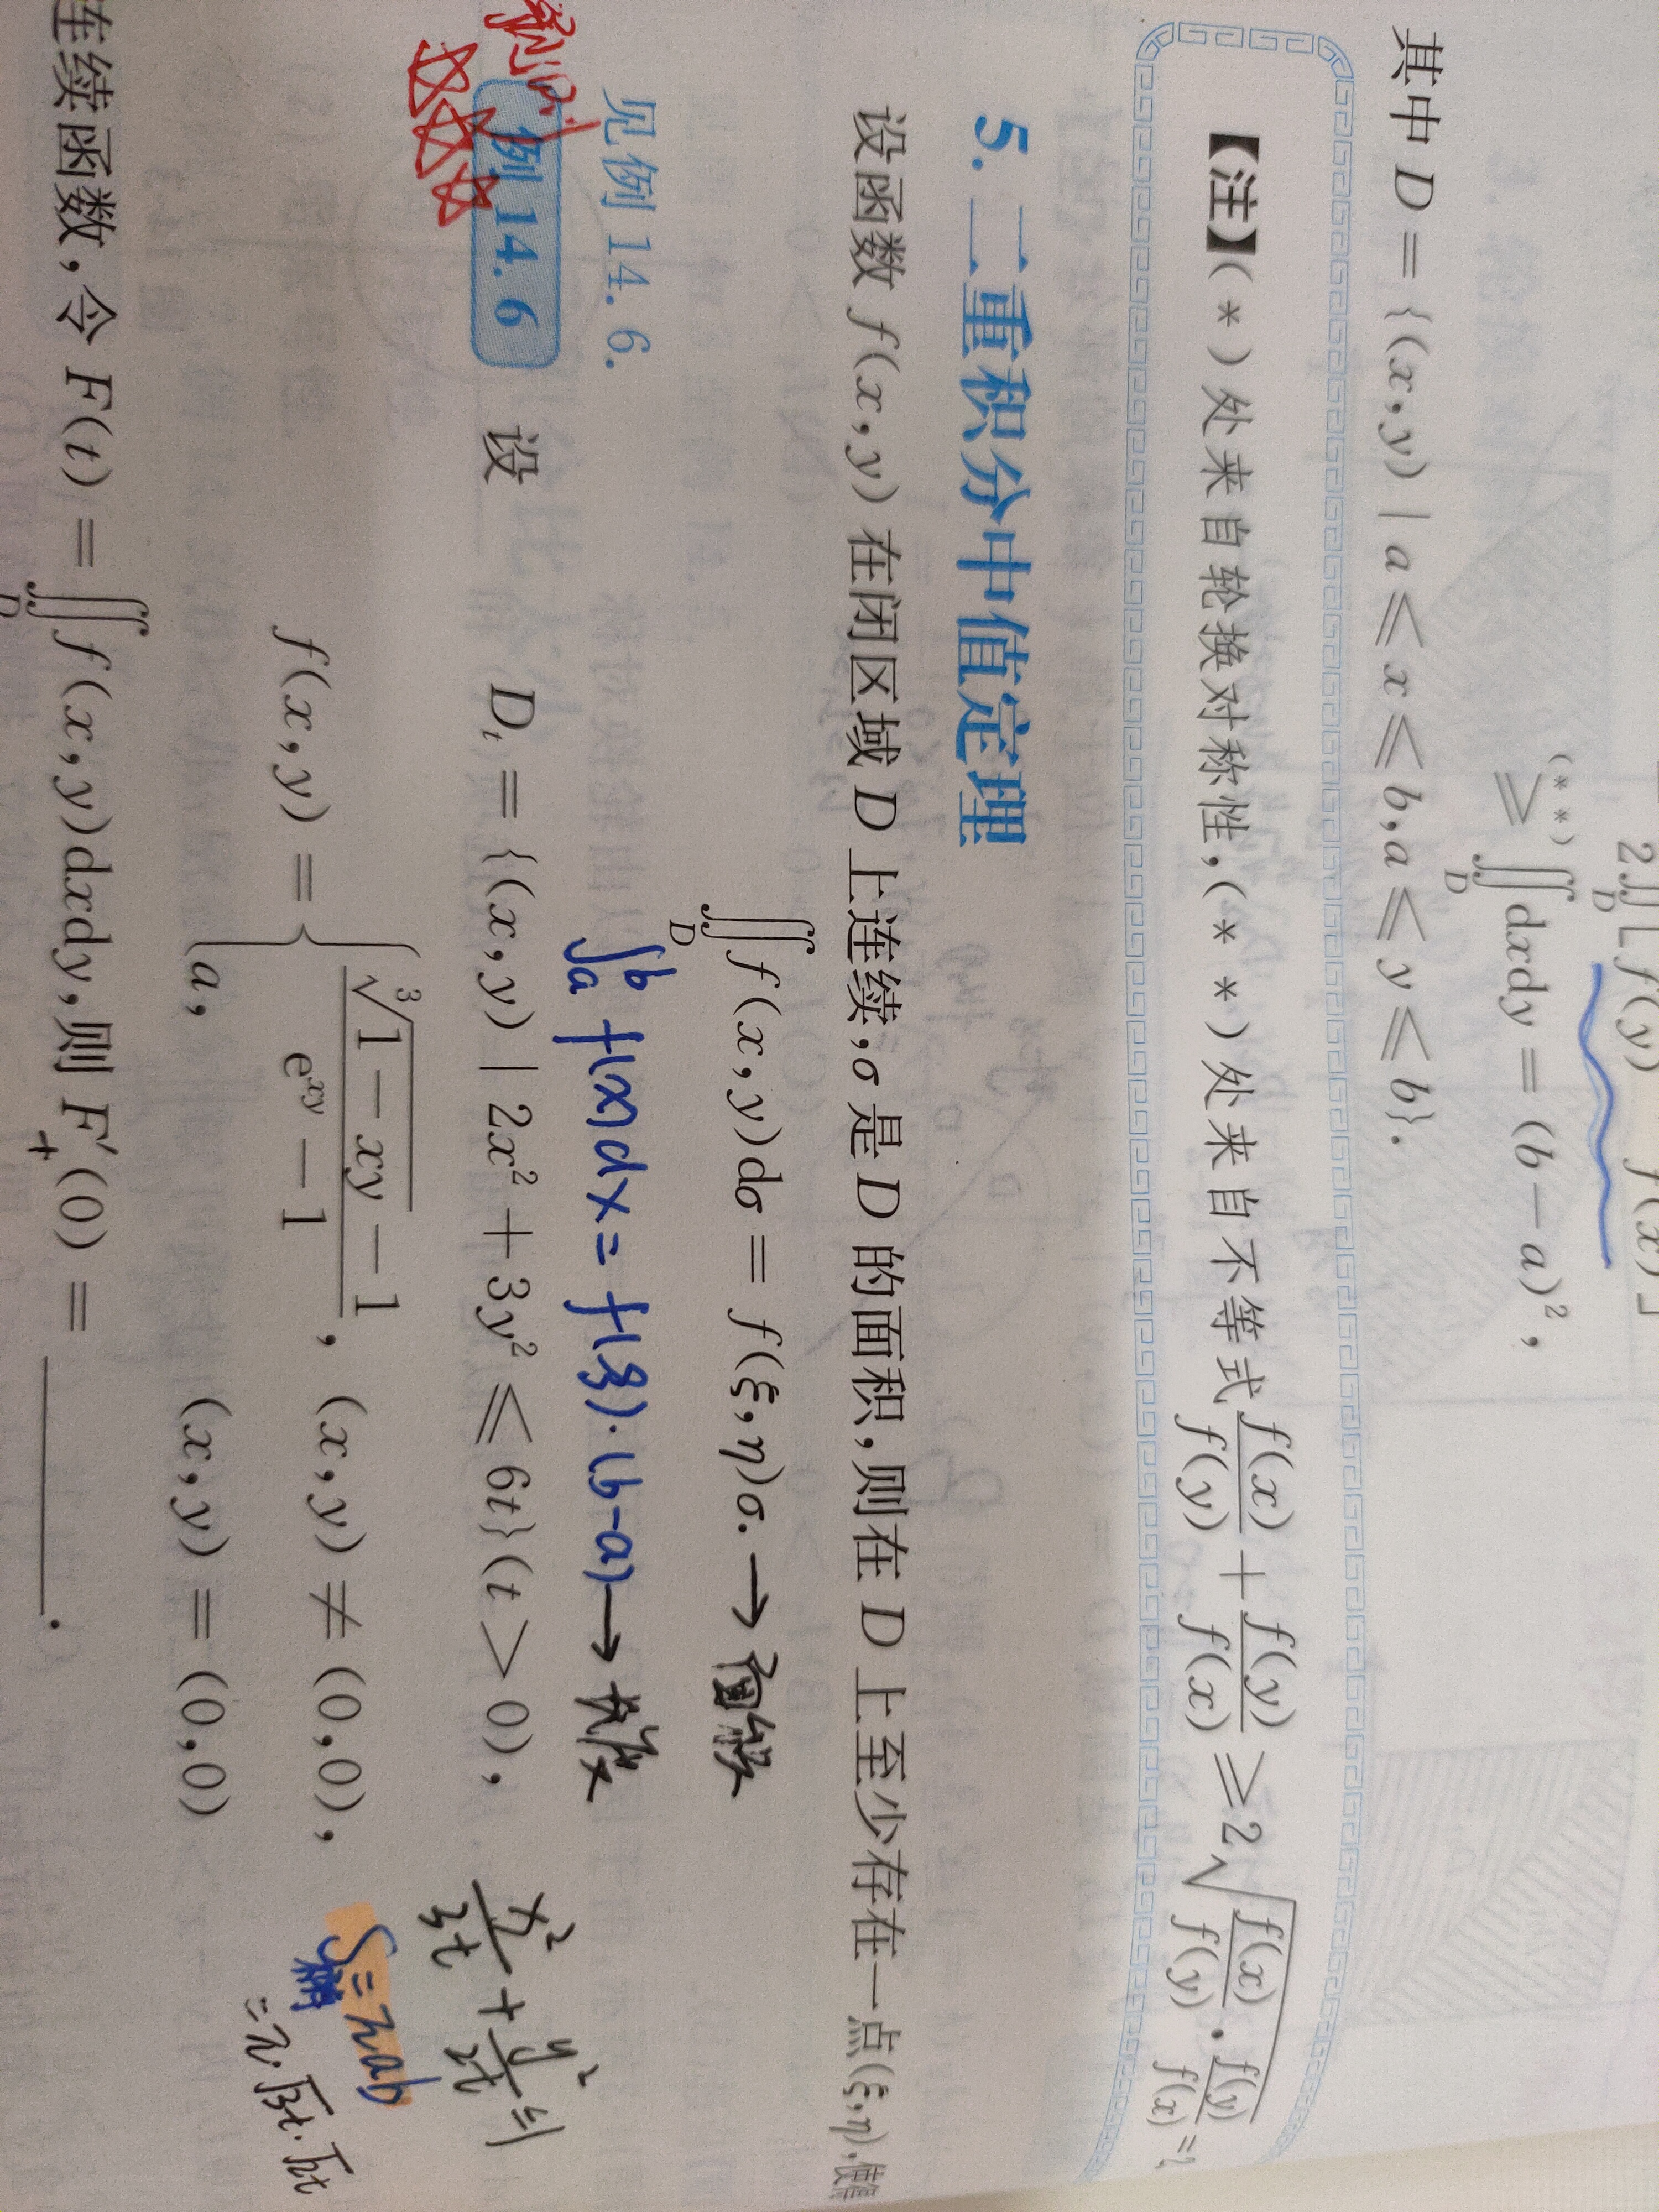 2∬_D [f(y) f(x)]
(**)≥ ∬_D dxdy = (b－a)²,
其中 D = {(x,y) | a ≤ x ≤ b,a ≤ y ≤ b}.
【注】(*)处来自轮换对称性,(**)处来自不等式 f(x)/f(y) + f(y)/f(x) ≥ 2√(f(x)/f(y) · f(y)/f(x)) = 2
5. 二重积分中值定理
设函数 f(x,y) 在闭区域 D 上连续,σ 是 D 的面积,则在 D 上至少存在一点(ξ,η),使得
∬_D f(x,y)dσ = f(ξ,η)σ. →
∫_a^b f(x)dx = f(ξ)·(b-a) →
见例 14.6.
例 14.6 设
D_t = {(x,y) | 2x² + 3y² ≤ 6t}(t > 0),
x²/3t + y²/2t ≤ 1
f(x,y) = { (∛(1－xy) － 1)/(e^{xy} － 1), (x,y) ≠ (0,0),
a, (x,y) = (0,0)
S = πab
= π·√3t·√2t
连续函数,令 F(t) = ∬_D f(x,y)dxdy,则 F′₊(0) = ______.